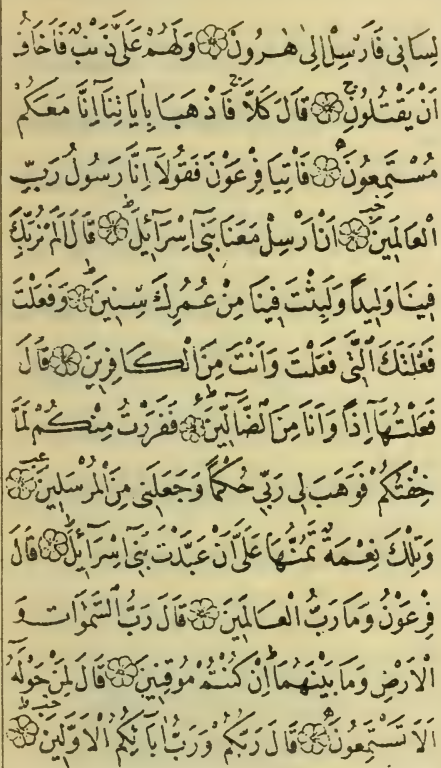 لِسَانِي فَاَرْسِلْ اِلٰى هٰرُونَ ۞ وَلَهُمْ عَلَيَّ ذَنْبٌ فَاَخَافُ
اَنْ يَقْتُلُونِ ۞ قَالَ كَلَّا فَاذْهَبَا بِاٰيَاتِنَٓا اِنَّا مَعَكُمْ
مُسْتَمِعُونَ ۞ فَاْتِيَا فِرْعَوْنَ فَقُولَٓا اِنَّا رَسُولُ رَبِّ
الْعَالَمِينَ ۞ اَنْ اَرْسِلْ مَعَنَا بَنِٓي اِسْرَٓائِلَ ۞ قَالَ اَلَمْ نُرَبِّكَ
فِينَا وَلِيداً وَلَبِثْتَ فِينَا مِنْ عُمُرِكَ سِنِينَ ۞ وَفَعَلْتَ
فَعْلَتَكَ الَّتِي فَعَلْتَ وَاَنْتَ مِنَ الْكَافِرِينَ ۞ قَالَ
فَعَلْتُهَٓا اِذاً وَاَنَا مِنَ الضَّٓالِّينَ ۞ فَفَرَرْتُ مِنْكُمْ لَمَّا
خِفْتُكُمْ فَوَهَبَ لِي رَبِّي حُكْماً وَجَعَلَنِي مِنَ الْمُرْسَلِينَ ۞
وَتِلْكَ نِعْمَةٌ تَمُنُّهَا عَلَيَّ اَنْ عَبَّدْتَ بَنِٓي اِسْرَٓائِلَ ۞ قَالَ
فِرْعَوْنُ وَمَا رَبُّ الْعَالَمِينَ ۞ قَالَ رَبُّ السَّمٰوَاتِ وَ
الْاَرْضِ وَمَا بَيْنَهُمَا اِنْ كُنْتُمْ مُوقِنِينَ ۞ قَالَ لِمَنْ حَوْلَهُٓ
اَلَا تَسْتَمِعُونَ ۞ قَالَ رَبُّكُمْ وَرَبُّ اٰبَٓائِكُمُ الْاَوَّلِينَ ۞